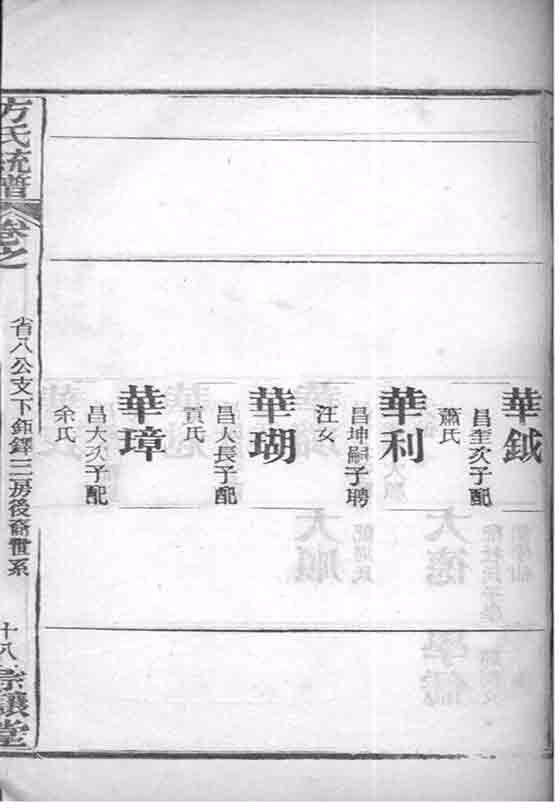 華鉞
昌奎次子配
蕭氏
華利
昌坤嗣子聘
汪女
華瑚
昌大長子配
賁氏
華璋
昌大次子配
余氏
方氏統譜
卷之
省八公支下鉅鐸三房後裔世系
十八
崇讓堂